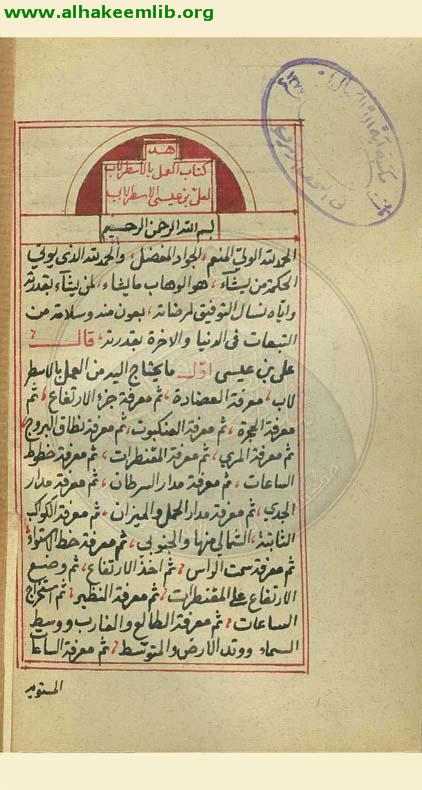 www.alhakeemlib.org
هذ
كتاب العمل بالاسطرلاب
لعلى بن عيسى الاسطرلابى
بسم الله الرحمن الرحيم
الحمد لله الولي المنعم، الجواد المفضل، والحمد لله الذي يؤتي
الحكمة من يشآء، هو الوهاب ما يشاء، لمن يشآء بقدرته
واياه نسال التوفيق لمرضاته، بعون منه وسلامة من
التبعات في الدنيا والاخرة بقدرته، قال
على بن عيسى اول ما يحتاج اليه من العمل بالاسطر
لاب، معرفة العضادة، ثم معرفة جزء الارتفاع، ثم
معرفة الحجرة، ثم معرفة العنكبوت، ثم معرفة نطاق البروج،
ثم معرفة المري، ثم معرفة المقنطرات، ثم معرفة خطوط
الساعات، ثم معرفة مدار السرطان، ثم معرفة مدار
الجدي، ثم معرفة مدار الحمل والميزان، ثم معرفة الكواكب
الثابتة، الشمالي منها والجنوبي، ثم معرفة خط الاستواء،
ثم معرفة سمت الراس، ثم اخذ الارتفاع، ثم وضع
الارتفاع على المقنطرات، ثم معرفة النظير، ثم استخراج
الساعات، ثم معرفة الطالع والغارب ووسط
السماء ووتد الارض والمتوسط، ثم معرفة الساعات
المستوية